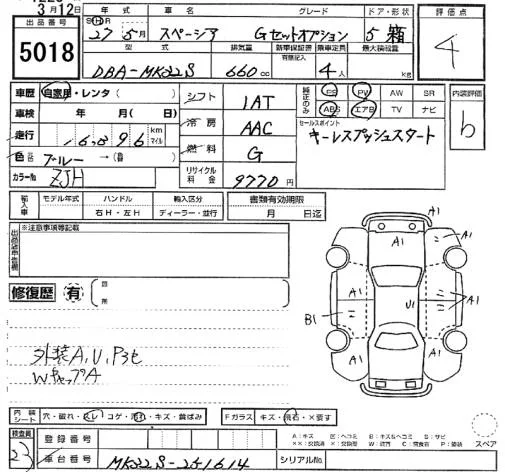 3月12日
出品番号
5018
年式 車名 グレード ドア・形状
S H R
27年 5月 スペーシア Gセットオプション 5 箱
型式 排気量 新車保証書 乗車定員 最大積載量
有 意記入
DBA-MK32S 660cc 4人 kg
評価点
4
車歴 自家用・レンタ( )
車検 年 月( 日)
走行 16,896 km マイル
色 ブルー →(替)
カラーNo ZJH
シフト IAT
冷房 AAC
燃料 G
リサイクル料金 9770円
純正のみ PS PW AW SR
ABS エアB TV ナビ
セールスポイント
キーレスプッシュスタート
内装評価
b
輸入車 モデル年式 ハンドル 輸入区分
右H・左H ディーラー・並行
書類有効期限
月 日迄
※注意事項等記載
修復歴 有
外装A,U,Pヨセ
WキャップA
A1
A1
A1
A1
A1
U1
B1
A1
内装シート 穴・破れ・スレ・コゲ・汚れ・キズ・黄ばみ
Fガラス キズ・飛石・×要す
検査員
23
登録番号
車台番号 MK32S-251614
シリアルNo.
A:キズ E:ヘコミ B:キズ&ヘコミ S:サビ
スペア